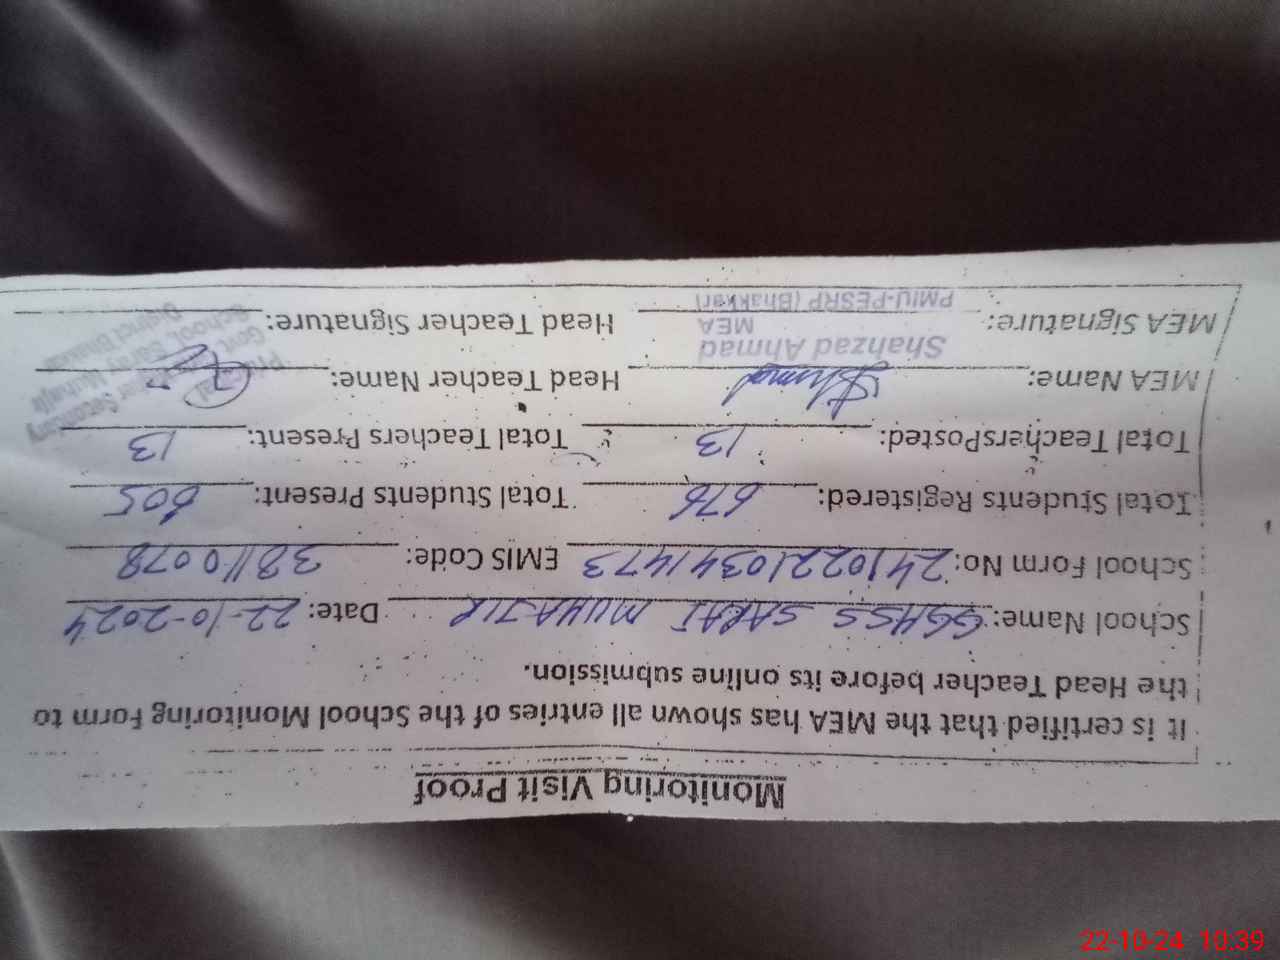 Monitoring Visit Proof
It is certified that the MEA has shown all entries of the School Monitoring Form to
the Head Teacher before its online submission.
School Name: GGHSS SARAI MUHAJIR Date: 22-10-2024
School Form No: 2410221034 1473 EMIS Code: 38110078
Total Students Registered: 676 Total Students Present: 605
Total TeachersPosted: 13 Total Teachers Present: 13
MEA Name: Head Teacher Name:
Shahzad Ahmad
MEA
PMIU-PESRP (Bhakkar)
MEA Signature: Head Teacher Signature:
Principal
Govt. Secondary
School, Saray Muhajir
District Bhakkar
22-10-24 10:39